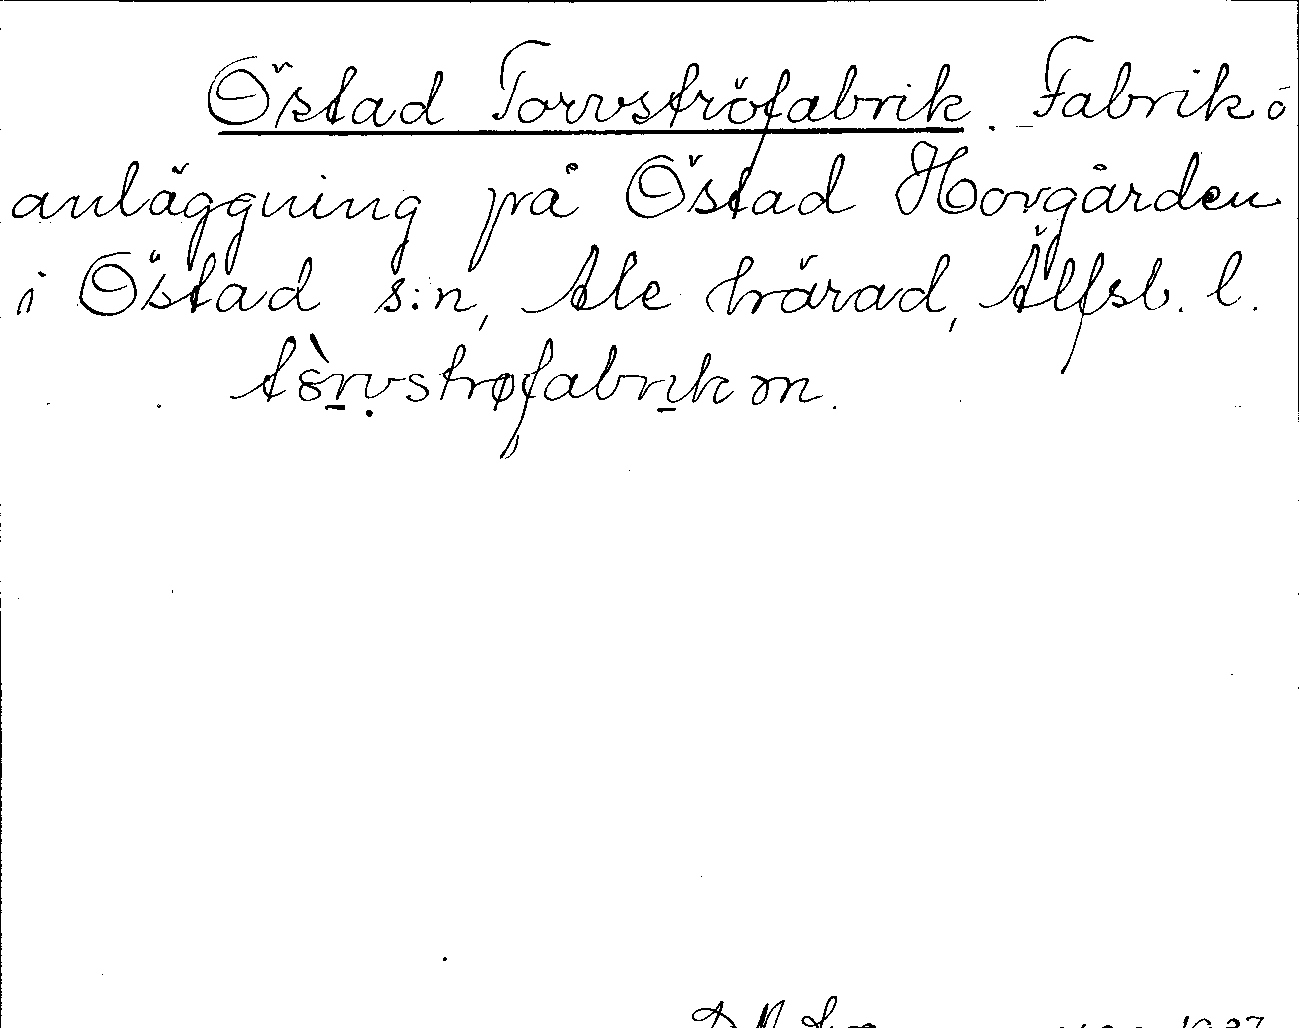 Östad Torvströfabrik. Fabriks
anläggning på Östad Hovgården
i Östad s:n, Ale härad, Älfsb. l.
tòrvstrøfabrikən.